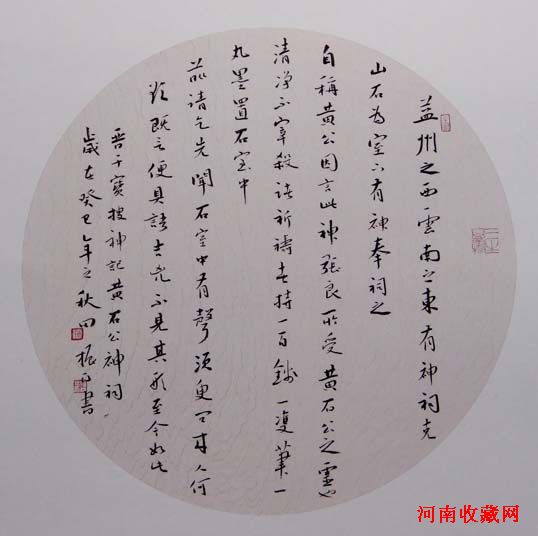 益州之西雲南之東有神祠克
山石為室下有神奉祠之
自稱黄公因言此神張良所受黄石公之靈也
清净不宰殺諸祈禱者持一百錢一雙筆一
丸墨置石室中
前請乞先聞石室中有聲須臾問来人何
欲既言便具語吉凶不見其形至今如此
晋干寳搜神記黄石公神祠
歲在癸巳年之秋田振書
河南收藏网